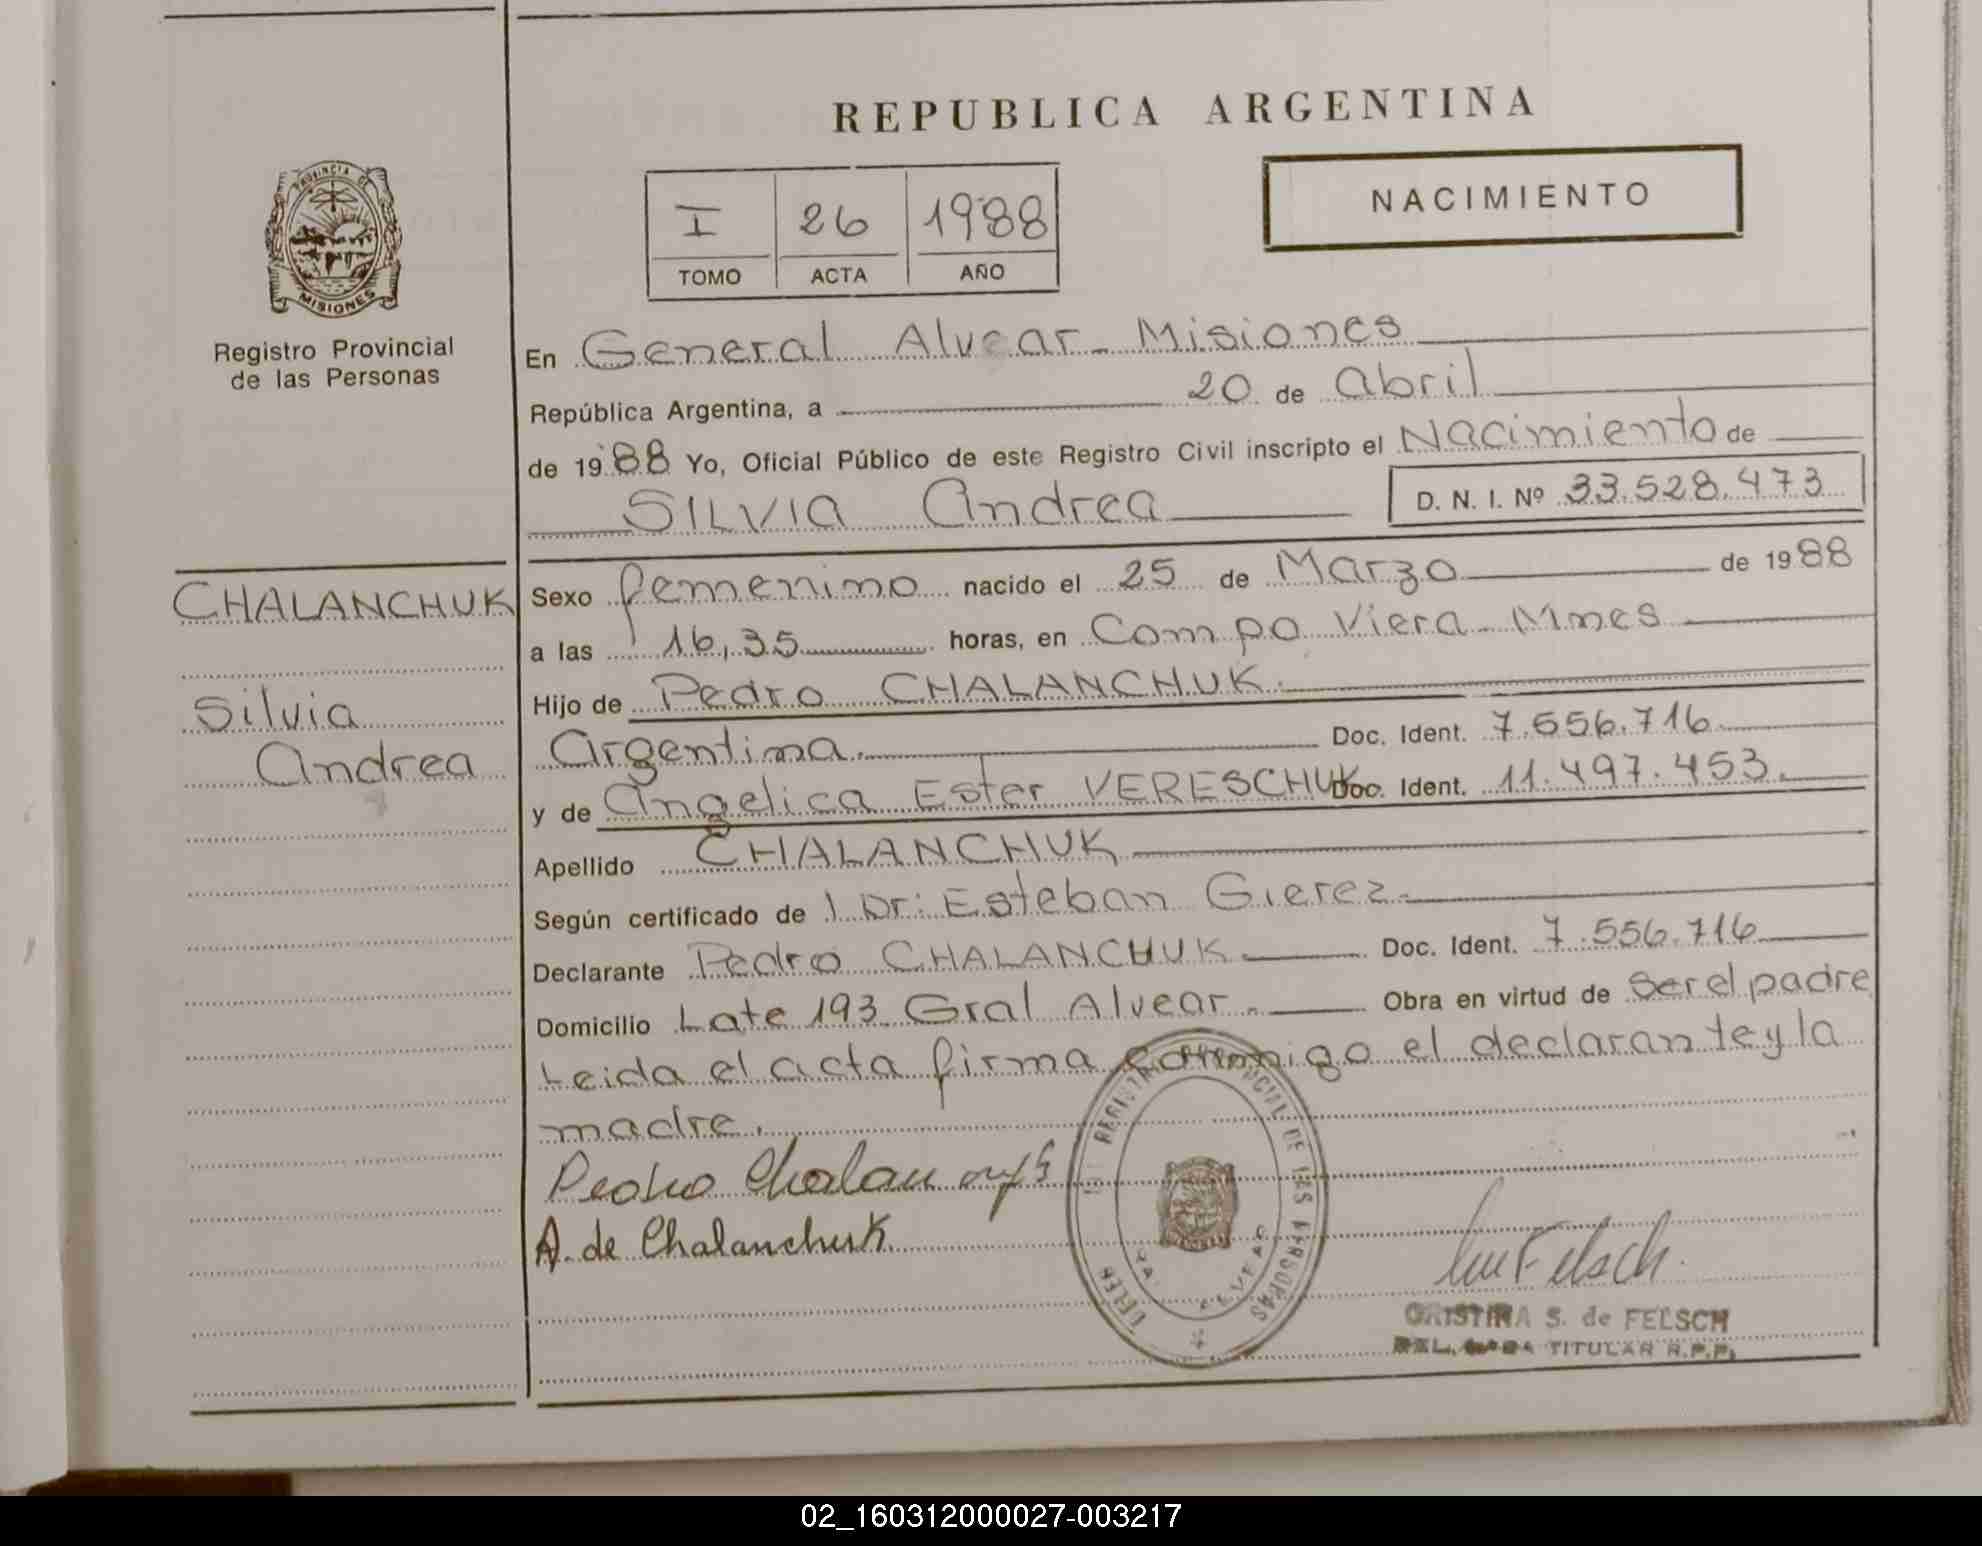 REPUBLICA ARGENTINA
PROVINCIA DE
MISIONES
Registro Provincial
de las Personas
I 26 1988
TOMO ACTA AÑO
NACIMIENTO
En General Alvear - Misiones
República Argentina, a 20 de Abril
de 1988 Yo, Oficial Público de este Registro Civil inscripto el Nacimiento de
SILVIA Andrea D. N. I. Nº 33.528.473
CHALANCHUK
Silvia
Andrea
Sexo femenino nacido el 25 de Marzo de 1988
a las 16,35 horas, en Campo Viera - Mnes
Hijo de Pedro CHALANCHUK.
Argentina. Doc. Ident. 7.556.716
y de Angelica Ester VERESCHUK Doc. Ident. 11.497.453.
Apellido CHALANCHUK
Según certificado de Dr: Esteban Gierez
Declarante Pedro CHALANCHUK Doc. Ident. 7.556.716
Domicilio Lote 193 Gral Alvear. Obra en virtud de ser el padre
Leida el acta firma conmigo el declarante y la
madre.
Pedro
A. de Chalanchuk
REGISTRO PROVINCIAL DE LAS PERSONAS
Felsch.
CRISTINA S. de FELSCH
TITULAR R.P.P.
02_160312000027-003217